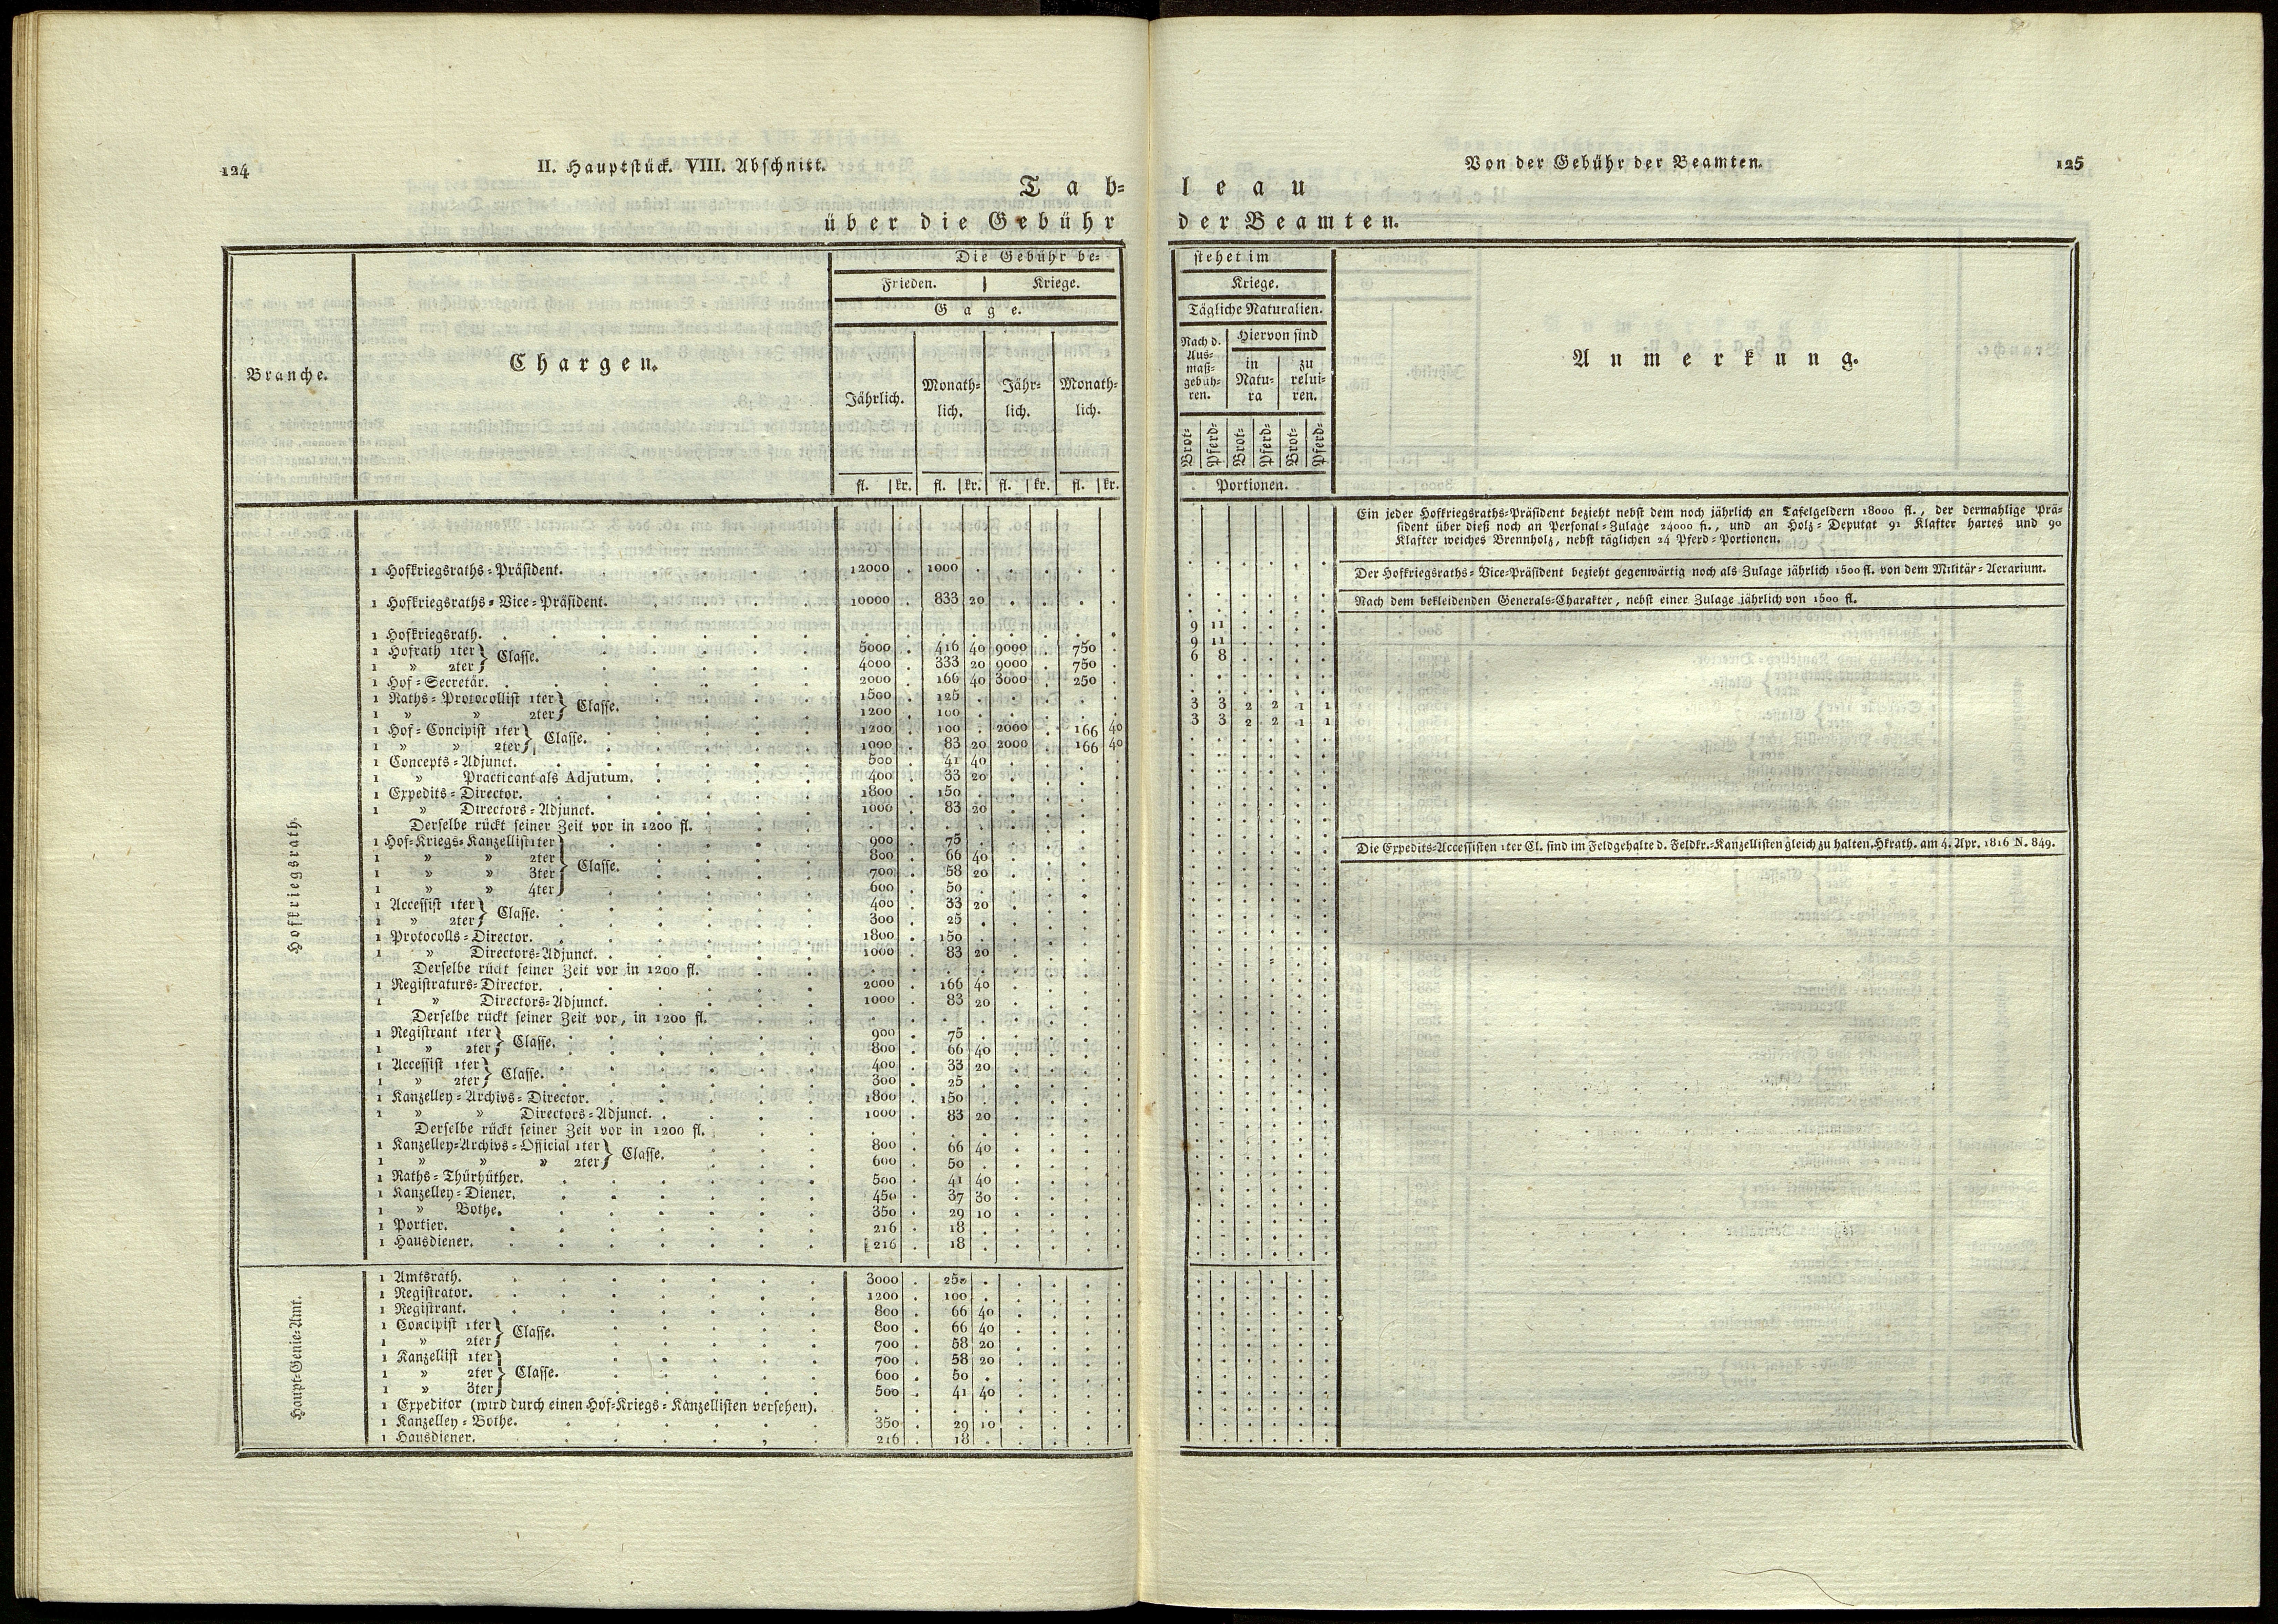 124
II. Hauptstück. VIII. Abschnitt.
Tab-
über die Gebühr
Branche.
Chargen.
Die Gebühr be-
Frieden. | Kriege.
Gage.
Jährlich. Monath-lich. Jähr-lich. Monath-lich.
fl. kr. fl. kr. fl. kr. fl. kr.
Hofkriegsrath.
1 Hofkriegsraths-Präsident. 12000 . 1000 . . . . .
1 Hofkriegsraths-Vice-Präsident. 10000 . 833 20 . . . .
1 Hofkriegsrath. . . . . . . . .
1 Hofrath 1ter } Classe. 5000 . 416 40 9000 . 750 .
1 » 2ter } 4000 . 333 20 9000 . 750 .
1 Hof-Secretär. 2000 . 166 40 3000 . 250 .
1 Raths-Protocollist 1ter } Classe. 1500 . 125 . . . . .
1 » » 2ter } 1200 . 100 . . . . .
1 Hof-Concipist 1ter } Classe. 1200 . 100 . 2000 . 166 40
1 » » 2ter } 1000 . 83 20 2000 . 166 40
1 Concepts-Adjunct. 500 . 41 40 . . . .
1 » Practicant als Adjutum. 400 . 33 20 . . . .
1 Expedits-Director. 1800 . 150 . . . . .
1 » Directors-Adjunct. 1000 . 83 20 . . . .
Derselbe rückt seiner Zeit vor in 1200 fl.
1 Hof-Kriegs-Kanzellist 1ter } Classe. 900 . 75 . . . . .
1 » » 2ter } 800 . 66 40 . . . .
1 » » 3ter } 700 . 58 20 . . . .
1 » » 4ter } 600 . 50 . . . . .
1 Accessist 1ter } Classe. 400 . 33 20 . . . .
1 » 2ter } 300 . 25 . . . . .
1 Protocolls-Director. 1800 . 150 . . . . .
1 » Directors-Adjunct. 1000 . 83 20 . . . .
Derselbe rückt seiner Zeit vor in 1200 fl.
1 Registraturs-Director. 2000 . 166 40 . . . .
1 » Directors-Adjunct. 1000 . 83 20 . . . .
Derselbe rückt seiner Zeit vor, in 1200 fl.
1 Registrant 1ter } Classe. 900 . 75 . . . . .
1 » 2ter } 800 . 66 40 . . . .
1 Accessist 1ter } Classe. 400 . 33 20 . . . .
1 » 2ter } 300 . 25 . . . . .
1 Kanzelley-Archivs-Director. 1800 . 150 . . . . .
1 » » Directors-Adjunct. 1000 . 83 20 . . . .
Derselbe rückt seiner Zeit vor in 1200 fl.
1 Kanzelley-Archivs-Official 1ter } Classe. 800 . 66 40 . . . .
1 » » » 2ter } 600 . 50 . . . . .
1 Raths-Thürhüther. 500 . 41 40 . . . .
1 Kanzelley-Diener. 450 . 37 30 . . . .
1 » Bothe. 350 . 29 10 . . . .
1 Portier. 216 . 18 . . . . .
1 Hausdiener. 216 . 18 . . . . .
Haupt-Genie-Amt.
1 Amtsrath. 3000 . 250 . . . . .
1 Registrator. 1200 . 100 . . . . .
1 Registrant. 800 . 66 40 . . . .
1 Concipist 1ter } Classe. 800 . 66 40 . . . .
1 » 2ter } 700 . 58 20 . . . .
1 Kanzellist 1ter } Classe. 700 . 58 20 . . . .
1 » 2ter } 600 . 50 . . . . .
1 » 3ter } 500 . 41 40 . . . .
1 Expeditor (wird durch einen Hof-Kriegs-Kanzellisten versehen).
1 Kanzelley-Bothe. 350 . 29 10 . . . .
1 Hausdiener. 216 . 18 . . . . .
Von der Gebühr der Beamten.
125
leau
der Beamten.
stehet im
Kriege.
Tägliche Naturalien.
Nach d. Aus-maß-gebüh-ren. Hiervon sind
in Natu-ra zu relui-ren.
Brot- Pferd- Brot- Pferd- Brot- Pferd-
Portionen.
Anmerkung.
9 11 . . . .
9 11 . . . .
6 8 . . . .
3 3 2 2 1 1
3 3 2 2 1 1
Ein jeder Hofkriegsraths-Präsident bezieht nebst dem noch jährlich an Tafelgeldern 18000 fl., der dermahlige Prä-
sident über dieß noch an Personal-Zulage 24000 fl., und an Holz-Deputat 91 Klafter hartes und 90
Klafter weiches Brennholz, nebst täglichen 24 Pferd-Portionen.
Der Hofkriegsraths-Vice-Präsident bezieht gegenwärtig noch als Zulage jährlich 1500 fl. von dem Militär-Aerarium.
Nach dem bekleidenden Generals-Charakter, nebst einer Zulage jährlich von 1500 fl.
Die Expedits-Accessisten 1ter Cl. sind im Feldgehalte d. Feldkr.-Kanzellisten gleich zu halten. Hkrath. am 4. Apr. 1816 N. 849.